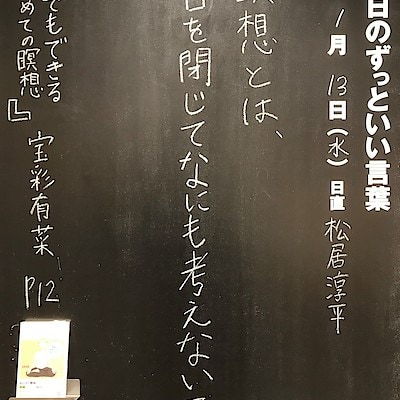 日のずっといい言葉
1月13日(水)日直 松居淳平
想とは、
目を閉じてなにも考えない
でもできる
めての瞑想』
宝彩有菜 P12